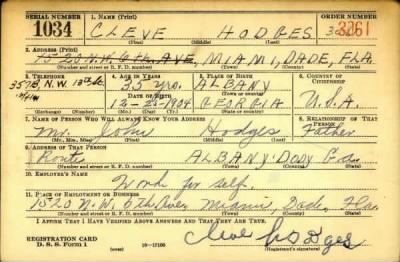 SERIAL NUMBER 1. NAME (Print) ORDER NUMBER
1034 CLEVE HODGES 3261
(First) (Middle) (Last)
2. ADDRESS (Print)
1520 N.W. 6 th AVE, MIAMI, DADE, FLA.
(Number and street or R. F. D. number) (Town) (County) (State)
3. TELEPHONE 4. AGE IN YEARS 5. PLACE OF BIRTH 6. COUNTRY OF CITIZENSHIP
3573 N.W. 13th St. 35 yrs. ALBANY
DATE OF BIRTH
12-25-1904 GEORGIA U.S.A.
(Exchange) (Number) (Mo.) (Day) (Yr.) (State or country)
7. NAME OF PERSON WHO WILL ALWAYS KNOW YOUR ADDRESS 8. RELATIONSHIP OF THAT PERSON
Mr. John Hodges Father
(Mr., Mrs., Miss) (First) (Middle) (Last)
9. ADDRESS OF THAT PERSON
Route ALBANY DODY Ga.
(Number and street or R. F. D. number) (Town) (County) (State)
10. EMPLOYER'S NAME
Work for self.
11. PLACE OF EMPLOYMENT OR BUSINESS
1520 N.W. 6th Ave. Miami, Dade, Fla.
(Number and street or R. F. D. number) (Town) (County) (State)
I AFFIRM THAT I HAVE VERIFIED ABOVE ANSWERS AND THAT THEY ARE TRUE.
REGISTRATION CARD
D. S. S. Form 1 16-17105 Cleve Hodges
(Registrant's signature)